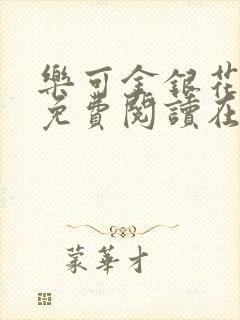 樂可金銀花
免費閱讀在
蒙華才